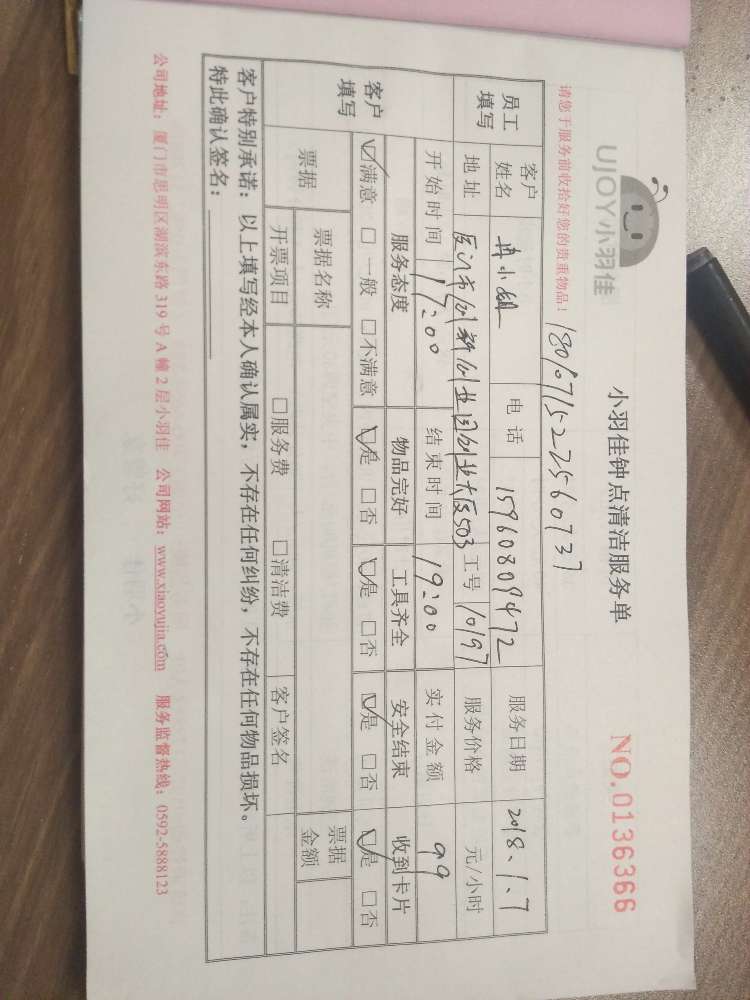 UJOY小羽佳
小羽佳钟点清洁服务单
NO.0136366
请您于服务前收拾好您的贵重物品!
员工填写
客户姓名
电话 15960809472
服务日期 2018.1.7
地址 厦门市创新创业园创业大厦503
工号 10197
服务价格 元/小时
开始时间 17:00
结束时间 19:00
实付金额 99
客户填写
服务态度 物品完好 工具齐全 安全结束 收到卡片
☑满意 □一般 □不满意 ☑是 □否 ☑是 □否 ☑是 □否 ☑是 □否
票据 票据名称 票据金额
开票项目 □服务费 □清洁费 客户签名
客户特别承诺:以上填写经本人确认属实,不存在任何纠纷,不存在任何物品损坏。
特此确认签名:
公司地址:厦门市思明区湖滨东路319号A幢2层小羽佳 公司网站:www.xiaoyujia.com 服务监督热线:0592-5888123